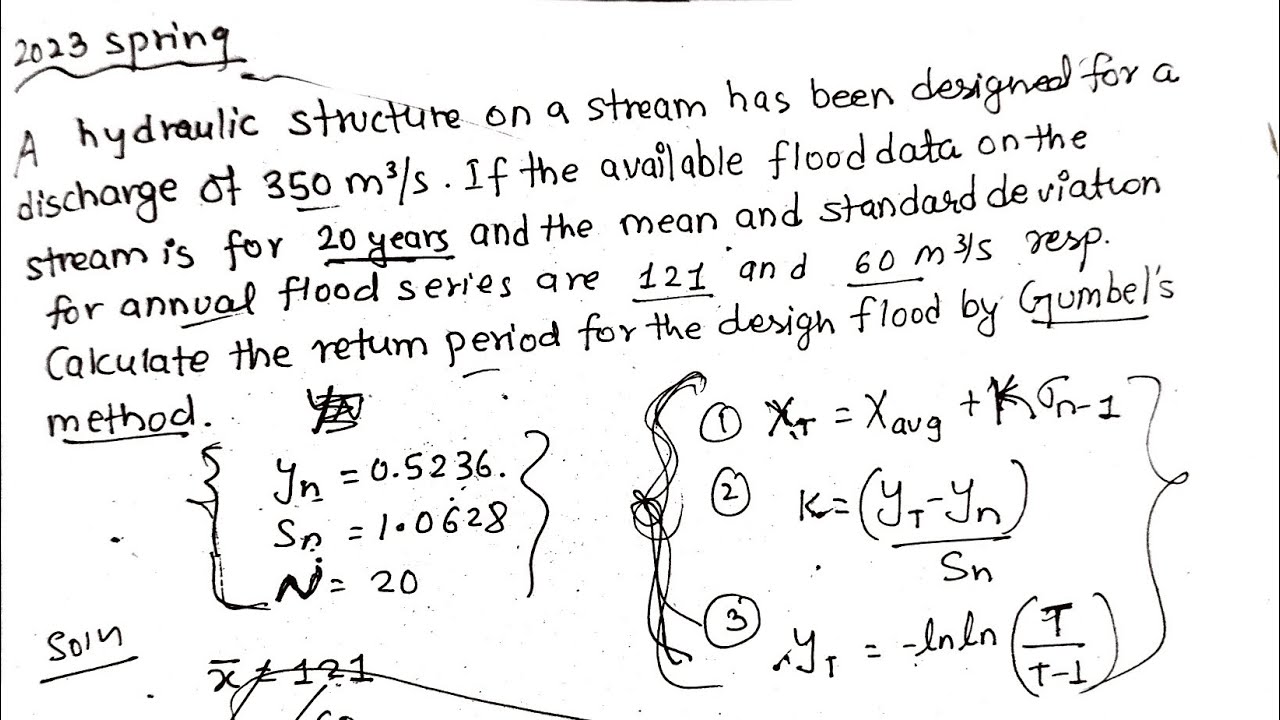 2023 spring
A hydraulic structure on a stream has been designed for a
discharge of 350 m³/s. If the available flood data on the
stream is for 20 years and the mean and standard deviation
for annual flood series are 121 and 60 m³/s resp.
Calculate the return period for the design flood by Gumbel's
method.
yn = 0.5236.
Sn = 1.0628
N = 20
① XT = Xavg + K σn-1
② K = (yT - yn) / Sn
③ yT = -ln ln (T / T-1)
Soln
x̄ = 121